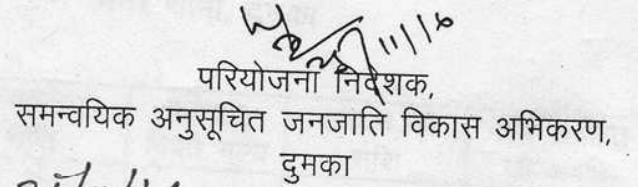 11/16
परियोजना निदेशक,
समन्वयिक अनुसूचित जनजाति विकास अभिकरण,
दुमका